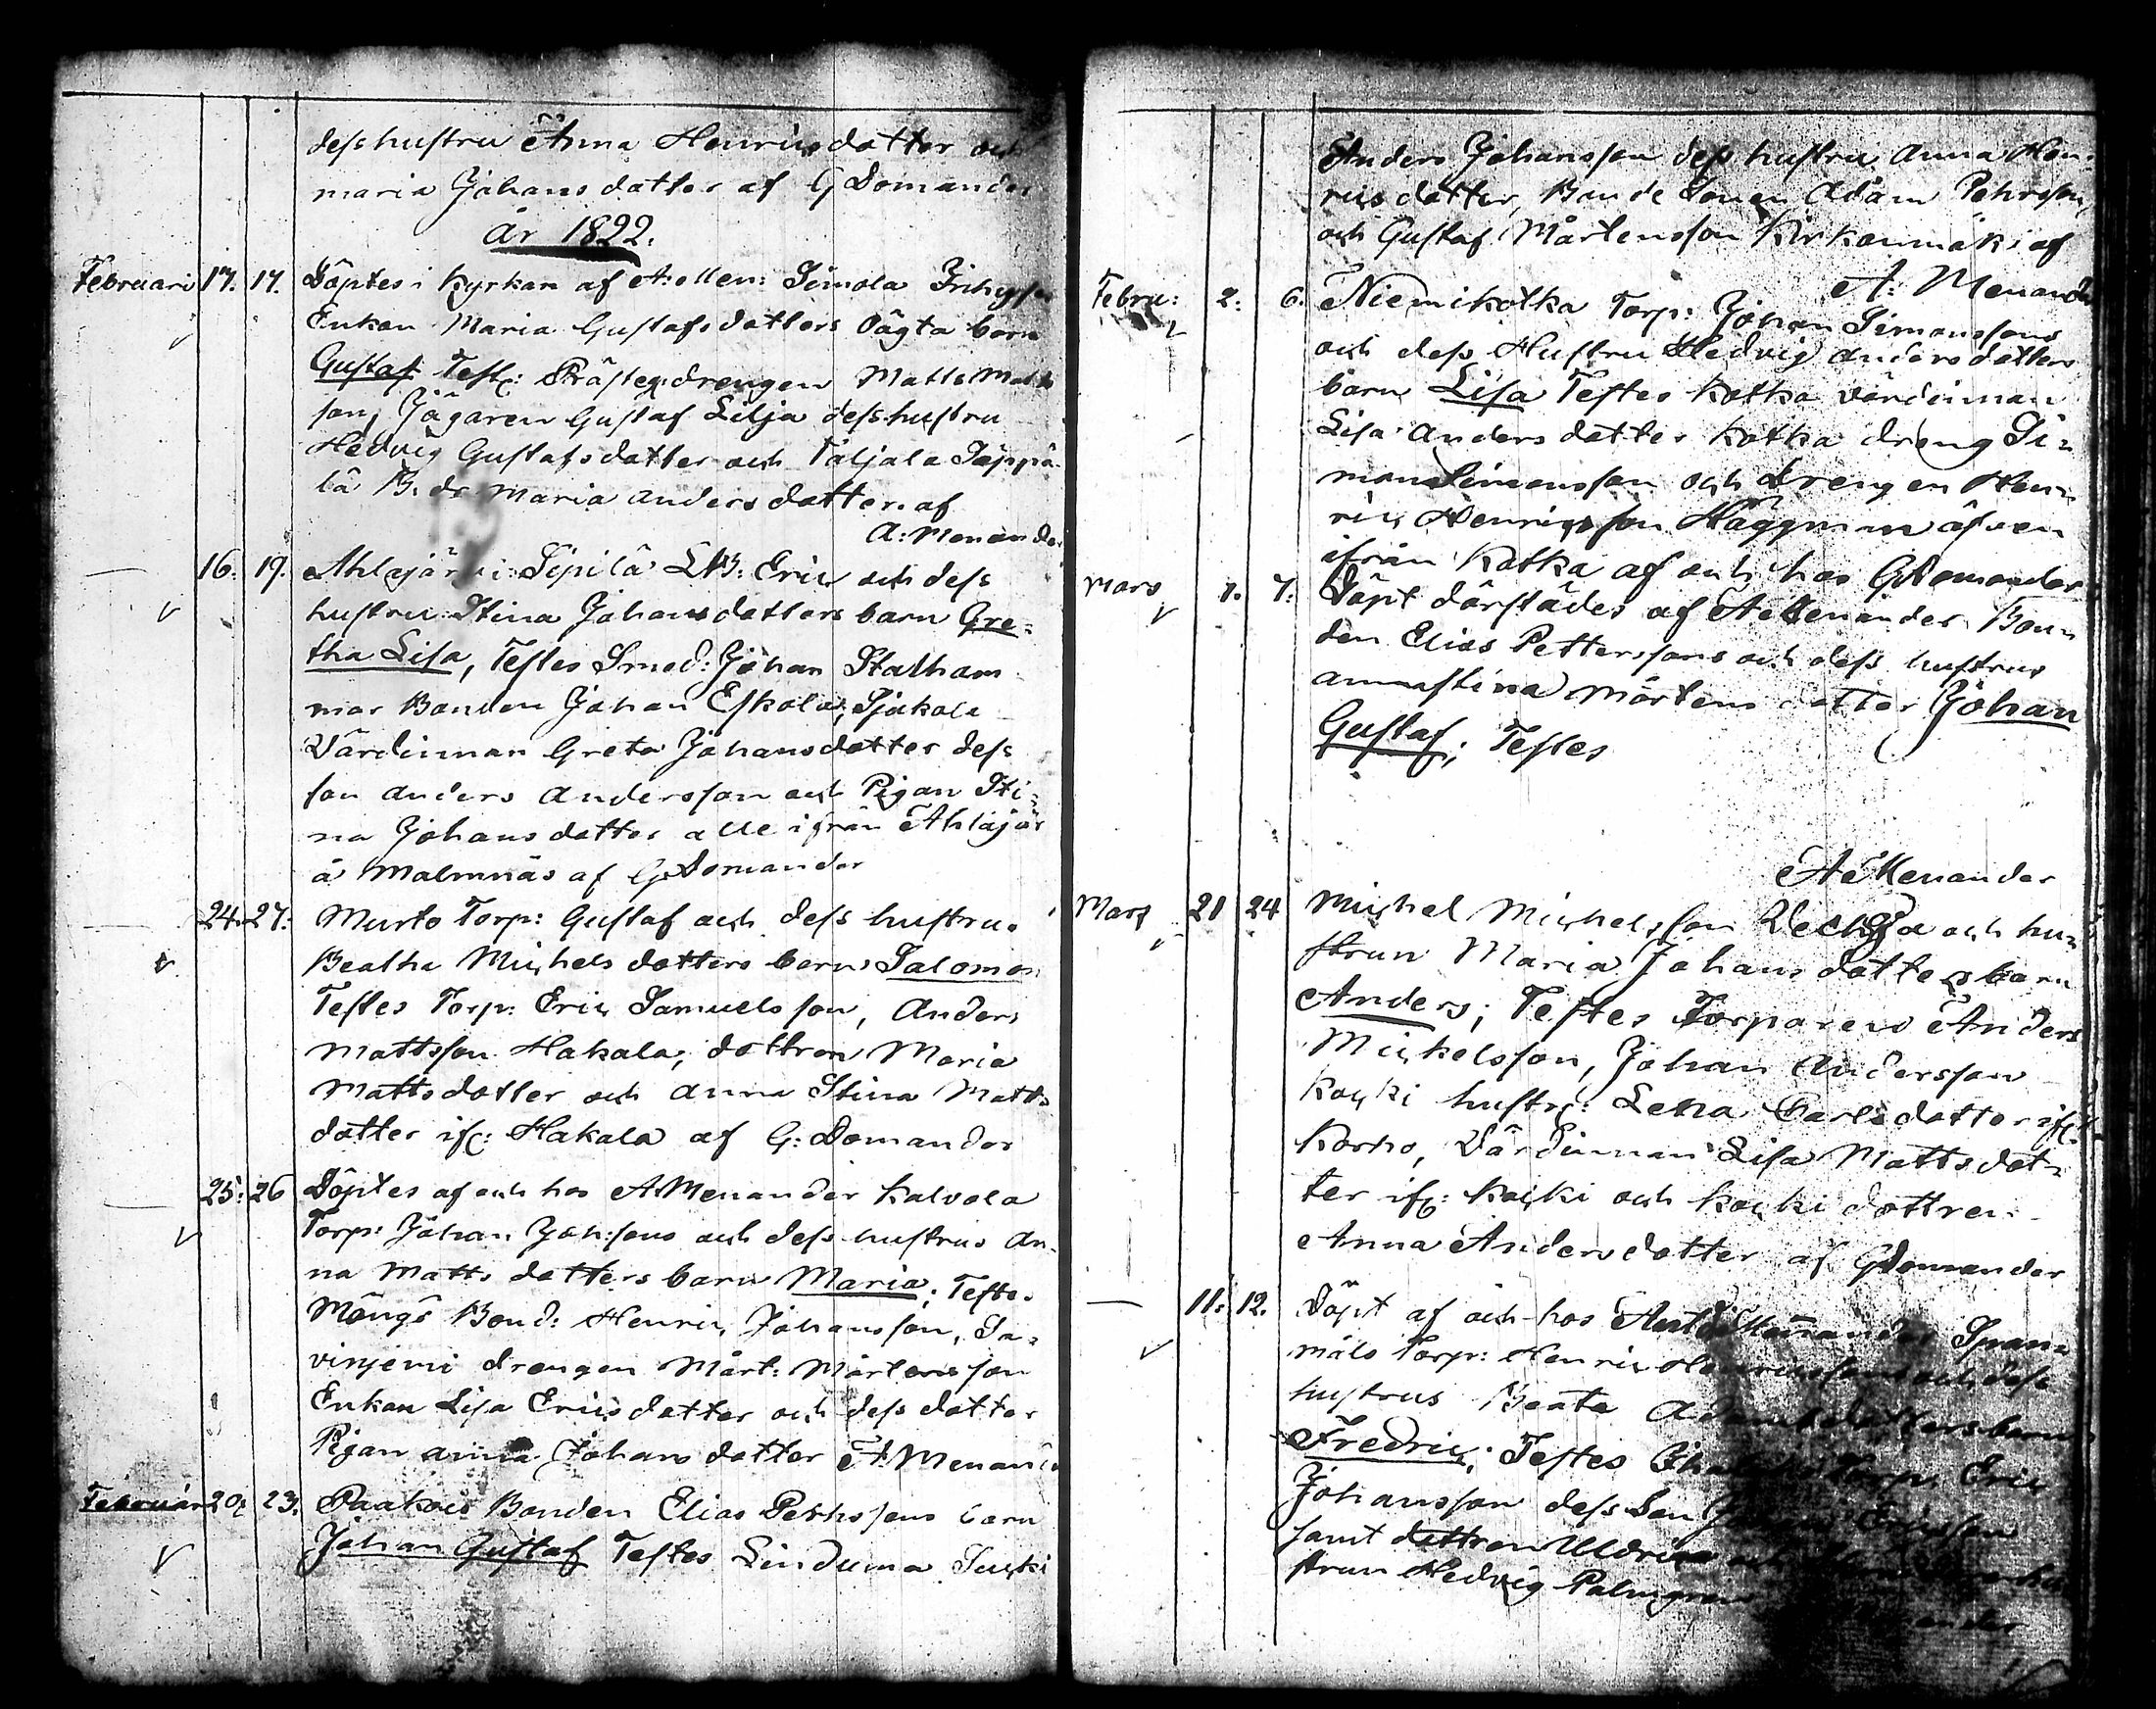 dess hustru Anna Henricsdotter och
maria Johansdotter af G Domander
År 1822.
Februari 17. 17. Döptes i Kyrkan af A: Men: Simola
Enkan Maria Gustafsdotters Oägta barn
Gustaf Test: Prästeg: drengen Matts Matts
son, Jägaren Gustaf Lilja dess hustru
Hedvig Gustafsdotter och Taljala Seppä
lä B. dr Maria Andersdotter. af
A: Menander
16. 19. Ahlajärvi Sipilä LB: Eric och dess
hustru Stina Johansdotters barn Gre-
tha Lisa, Testes Smed: Johan Stalham
mar Bonden Johan Eskola, Sjukola
Värdinnan Greta Johansdotter dess
son Anders Andersson och Pigan Sti-
na Johansdotter alle ifrån Ahlajär
å Malmnäs af G Domander
24. 27. Murto Torp: Gustaf och dess hustru
Beatha Michelsdotters barn Salomon
Testes Torp: Eric Samuelsson, Anders
Mattsson Hakala, dottron Maria
Mattsdotter och Anna Stina Matts
dotter ifr: Hakala af G: Domander
25: 26 Döptes af och hos A Menander Kalvola
Torp: Johan Joh:sons och dess hustrus An-
na Mattsdotters barn Maria; Testes
Mångs Bond: Henric Johansson, Sa-
vinjemi drengen Mårt: Mårtensson
Enkan Lisa Ericsdotter och dess dotter
Pigan anna Johansdotter A Menander
Februari 20; 23. Paakois Bonden Elias Pehrssons barn
Johan Gustaf Testes Linduma Suski
Anders Johansson dess hustru Anna Hen-
ricsdotter, Bonde Sonen Adam Pehrsson,
och Gustaf Mårtensson Kirkonmäki af
A: Menander
Febru: 2: 6. Niemikotka Torp: Johan Simonssons
och dess Hustru Hedvig Andersdotters
barn Lisa Testes Kotka värdinnan
Lisa Andersdotter Kotka dreng Si-
mon Simonsson och Drengen Hen-
ric Henricsson Häggman äfven
ifrån Kotka af och hos G Domander
Mars 1. 7: Döpt därstädes af A Menander Bon-
den Elias Petterssons och dess hustrus
annastina Mårtensdotter Johan
Gustaf; Testes
A Menander
Mars 21 24 Michel Michelsson och hu-
strun Maria Johansdotters barn
Anders; Testes Torparen Anders
Mickelsson, Johan Andersson
Kocki hustr: Lena Carlsdotter ifr:
Korho, Värdinnan Lisa Mattsdot-
ter ifr: Kocki och Kocki dottren
Anna Andersdotter af G Domander
11. 12. Döpt af och hos Menander Span-
mäls Torp: Henric Henricssons och dess
hustrus Beata Adamsdotters barn
Fredric; Testes Torp: Eric
Johansson dess Son Ericsson
samt dottren Uldrica och
strun Hedvig Palmgren
ander